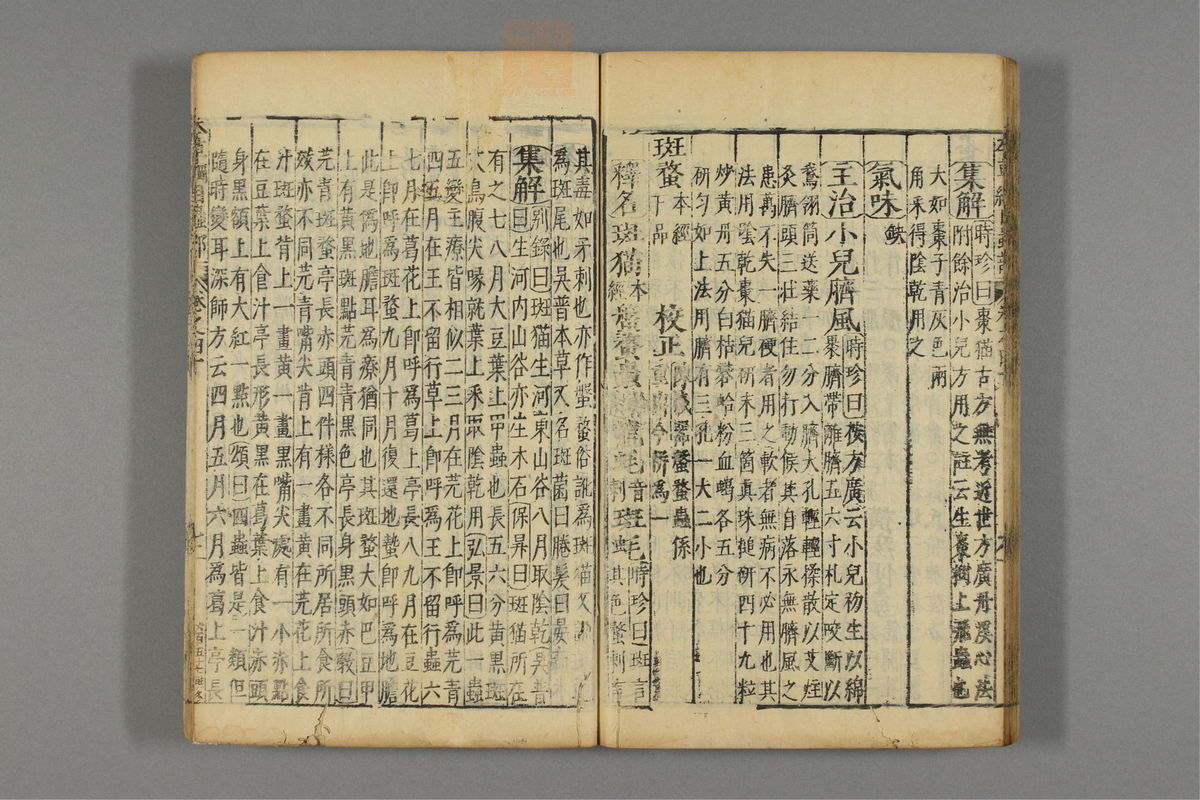 集解時珍曰棗猫古方無考近世方廣丹溪心法
附餘治小兒方用之註云生棗樹上飛蟲也
大如棗子青灰色兩
角采得陰乾用之
氣味缺
主治小兒臍風時珍曰按方廣云小兒初生以綿
裹臍帶離臍五六寸扎定咬斷以
鵞翎筒送藥一二分入臍大孔輕輕揉散以艾炷
灸臍頭三壯結住勿打動候其自落永無臍風之
患萬不失一臍硬者用之軟者無病不必用也其
法用陰乾棗猫兒研末三箇真珠搥研四十九粒
炒黃丹五分白枯礬蛤粉血竭各五分
研勻如上法用臍有三孔一大二小也
斑蝥本經下品 校正 今併為一
釋名斑猫本經 時珍曰斑言其色蝥刺言
其毒如矛刺也亦作螌蝥俗訛為斑猫又
為斑尾也吳普本草又名斑菌曰腃髮曰晏
集解别錄曰斑猫生河東山谷八月取陰乾吳普
曰生河内山谷亦生木石保昇曰斑猫所在
有之七八月大豆葉上甲蟲也長五六分黃黑斑
文烏腹尖喙就葉上采取陰乾用弘景曰此一蟲
五變主療皆相似二三月在芫花上卽呼為芫青
四五月在王不留行草上卽呼為王不留行蟲六
七月在葛花上卽呼為葛上亭長八九月在豆花
上卽呼為斑蝥九月十月復還地蟄卽呼為地膽
此是僞地膽耳為療猶同也其斑蝥大如巴豆甲
上有黃黑斑點芫青青黑色亭長身黑頭赤斅曰
芫青斑蝥亭長赤頭四件樣各不同所居所食所
效亦不同芫青嘴尖背上有一畫黃在芫花上食
汁斑蝥背上一畫黃一畫黑嘴尖處有一小赤點
在豆葉上食汁亭長形黃黑在葛葉上食汁赤頭
身黑額上有大紅一點也頌曰四蟲皆是一類但
隨時變耳深師方云四月五月六月為葛上亭長